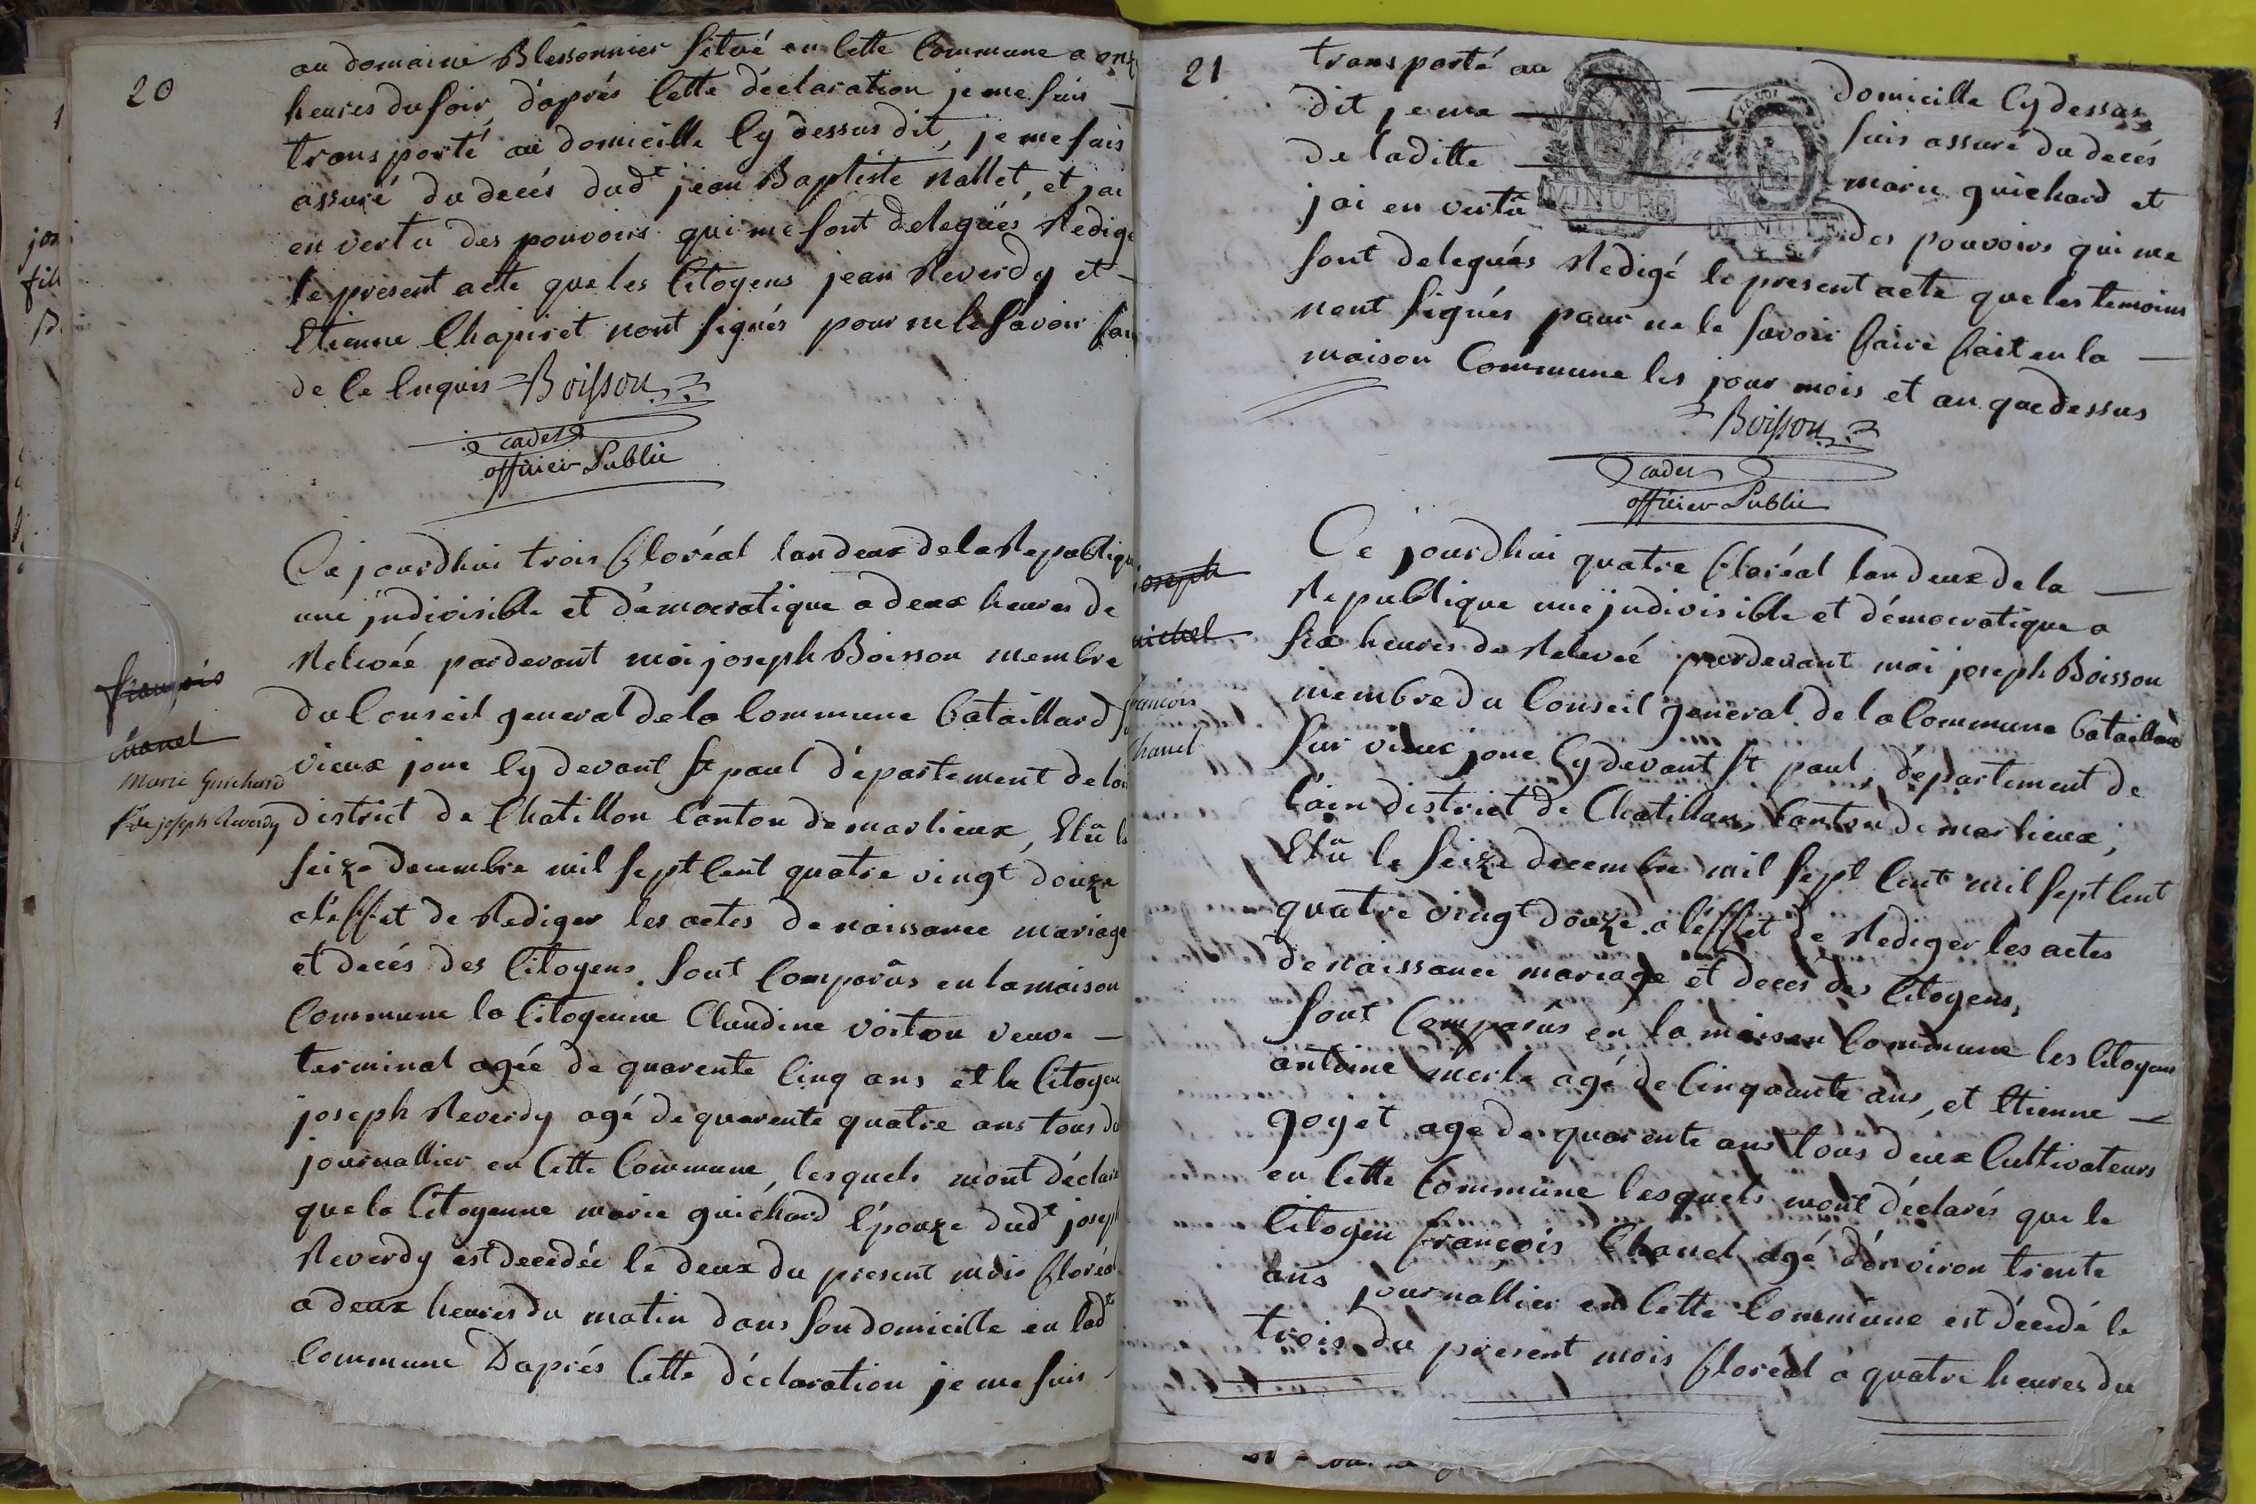 20
au domaine Blessonnier situé en cette commune a onze
heures du soir, d'aprés cette déclaration je me suis
transporté au domicille cy dessus dit, je me suis
assuré du decés dudt jean Baptiste nallet, et jai
en vertu des pouvoirs qui me sont delegués Redigé
le present acte que les Citoyens jean Reverdy et
Etienne Chapiret nont signés pour ne le savoir fai
de ce enquis Boisson
cadet
officier Public
Ce jourdhui trois floréal lan deux de la Republique
une jndivisible et démocratique a deux heures de
Relevée pardevant moi joseph Boisson membre
du Conseil general de la Commune Bataillard
vieux jonc cy devant st paul département de lain
district de Chatillon Canton de marlieux, Elû le
seize decembre mil sept cent quatre vingt douze
a l'effet de Rediger les actes de naissance mariage
et decés des Citoyens. sont Comparûs en la maison
Commune la Citoyenne Claudine voiton veuve
terminal agée de quarente cinq ans et le Citoyen
joseph Reverdy agé de quarente quatre ans tous d
journallier en cette Commune, lesquels mont déclaré
que la Citoyenne marie guichard Epouze dudt joseph
Reverdy est decedée le deux du present mois floréal
a deux heures du matin dans son domicille en ladt
Commune D'aprés cette déclaration je me suis
françois
chanel
Marie Guichard
fe de joseph Reverdy
21
transporté au domicille cy dessus
dit je me suis assuré du decés
de laditte marie guichard et
jai en vertû des pouvoirs qui me
MINUTE
MINUTE
sont delegués Redigé le present acte que les temoins
nont signés pour ne le savoir faire fait en la
maison Commune les jour mois et an que dessus
Boisson
cadet
officier Public
joseph
michel
françois
Chanel
Ce jourdhui quatre floréal lan deux de la
Republique une jndivisible et démocratique a
six heures de Relevée pardevant moi joseph Boisson
membre du Conseil general de la Commune Bataillard
sur vieux jonc cy devant st paul, département de
l'ain district de Chatillon, Canton de marlieux,
Elû le seize decembre mil sept cent mil sept cent
quatre vingt douze a l'éffet de Rediger les actes
de naissance mariage et decés des Citoyens,
sont Comparûs en la maison Commune les Citoyens
antoine merle agé de Cinquante ans, et Etienne
goyet agé de quarente ans tous deux Cultivateurs
en cette Commune lesquels mont déclarés que le
Citoyen françois Chanel agé d'environ trente
ans journallier en cette Commune est décedé le
trois du present mois floréal a quatre heures du